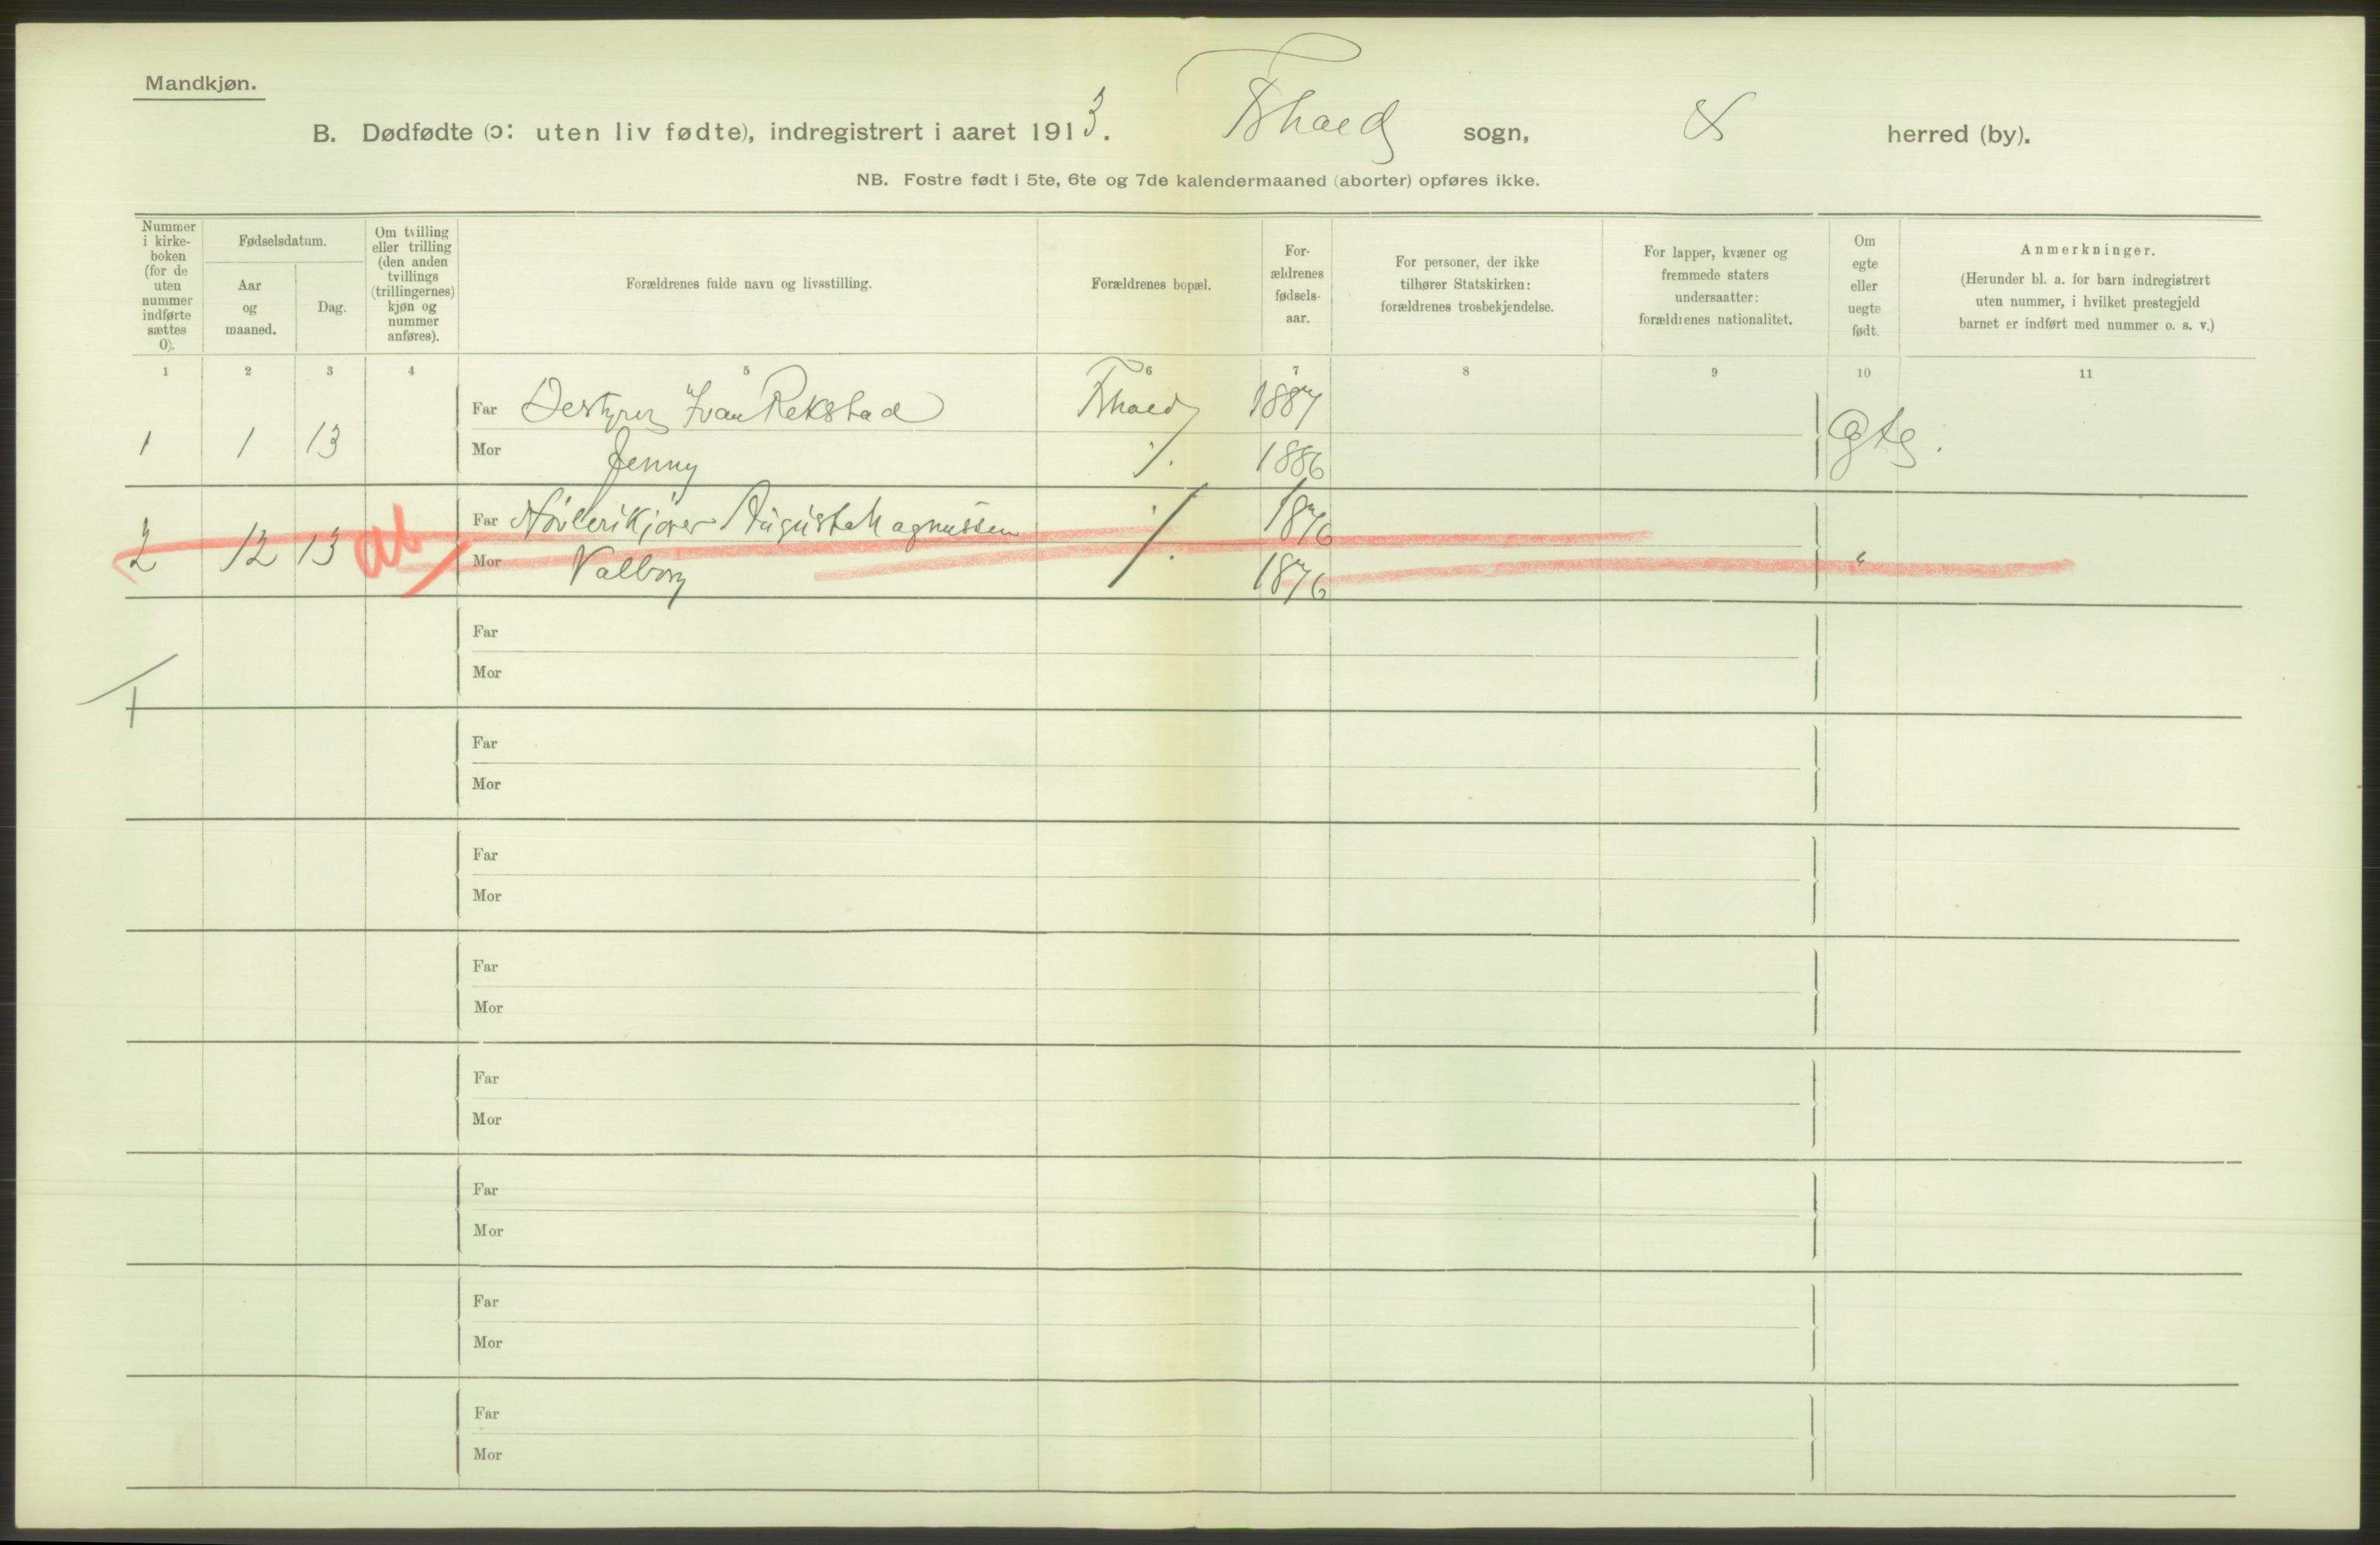 Mandkjøn.
B. Dødfødte (ɔ: uten liv fødte), indregistrert i aaret 1913. Fhald sogn, & herred (by).
NB. Fostre født i 5te, 6te og 7de kalendermaaned (aborter) opføres ikke.
Nummer i kirke-boken (for de uten nummer indførte sættes 0).
Fødselsdatum.
Aar og maaned.
Dag.
Om tvilling eller trilling (den anden tvillings (trillingernes) kjøn og nummer anføres).
Forældrenes fulde navn og livsstilling.
Forældrenes bopæl.
For-ældrenes fødsels-aar.
For personer, der ikke tilhører Statskirken: forældrenes trosbekjendelse.
For lapper, kvæner og fremmede staters undersaatter: forældrenes nationalitet.
Om egte eller uegte født.
Anmerkninger.
(Herunder bl. a. for barn indregistrert uten nummer, i hvilket prestegjeld barnet er indført med nummer o. s. v.)
1 2 3 4 5 6 7 8 9 10 11
Far Bestyrer Ivan Rekstad Fhald 1887
1 1 13 Mor Jenny ./. 1886 Egte.
Far August Magnussen ./. 1876
2 12 13 ab Mor Valborg 1876 "
Far
Mor
Far
Mor
Far
Mor
Far
Mor
Far
Mor
Far
Mor
Far
Mor
Far
Mor